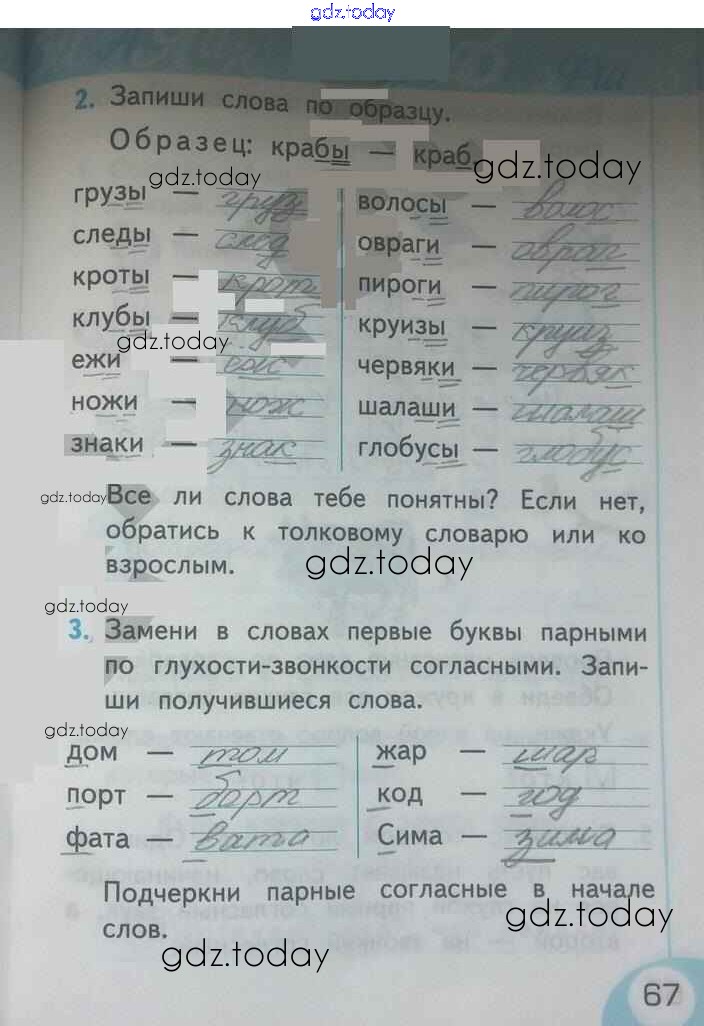 gdz.today
2. Запиши слова по образцу.
Образец: крабы — краб.
gdz.today
gdz.today
грузы — груз
следы — след
кроты — крот
клубы — клуб
gdz.today
ежи — еж
ножи — нож
знаки — знак
волосы — волос
овраги — овраг
пироги — пирог
круизы — круиз
червяки — червяк
шалаши — шалаш
глобусы — глобус
gdz.today
Все ли слова тебе понятны? Если нет,
обратись к толковому словарю или ко
взрослым.
gdz.today
gdz.today
3. Замени в словах первые буквы парными
по глухости-звонкости согласными. Запи-
ши получившиеся слова.
gdz.today
дом — том
порт — борт
фата — вата
жар — шар
код — год
Сима — зима
Подчеркни парные согласные в начале
слов.
gdz.today
gdz.today
67